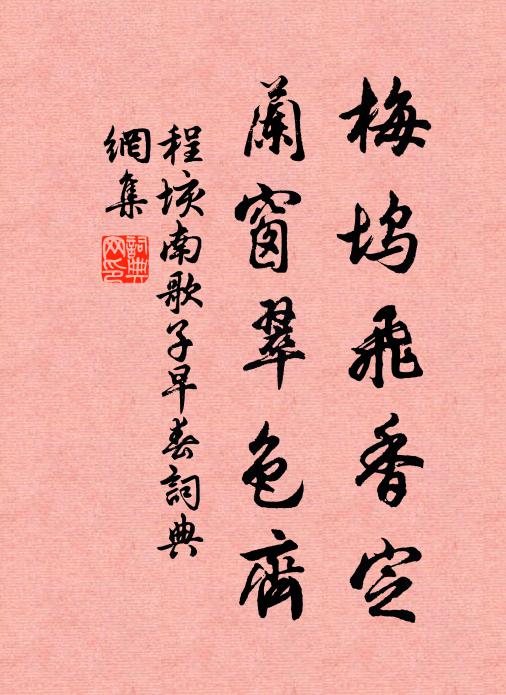 梅坞飛香定
蘭窗翠色齊
程垓南歌子早春詞典
網集
詞典網印